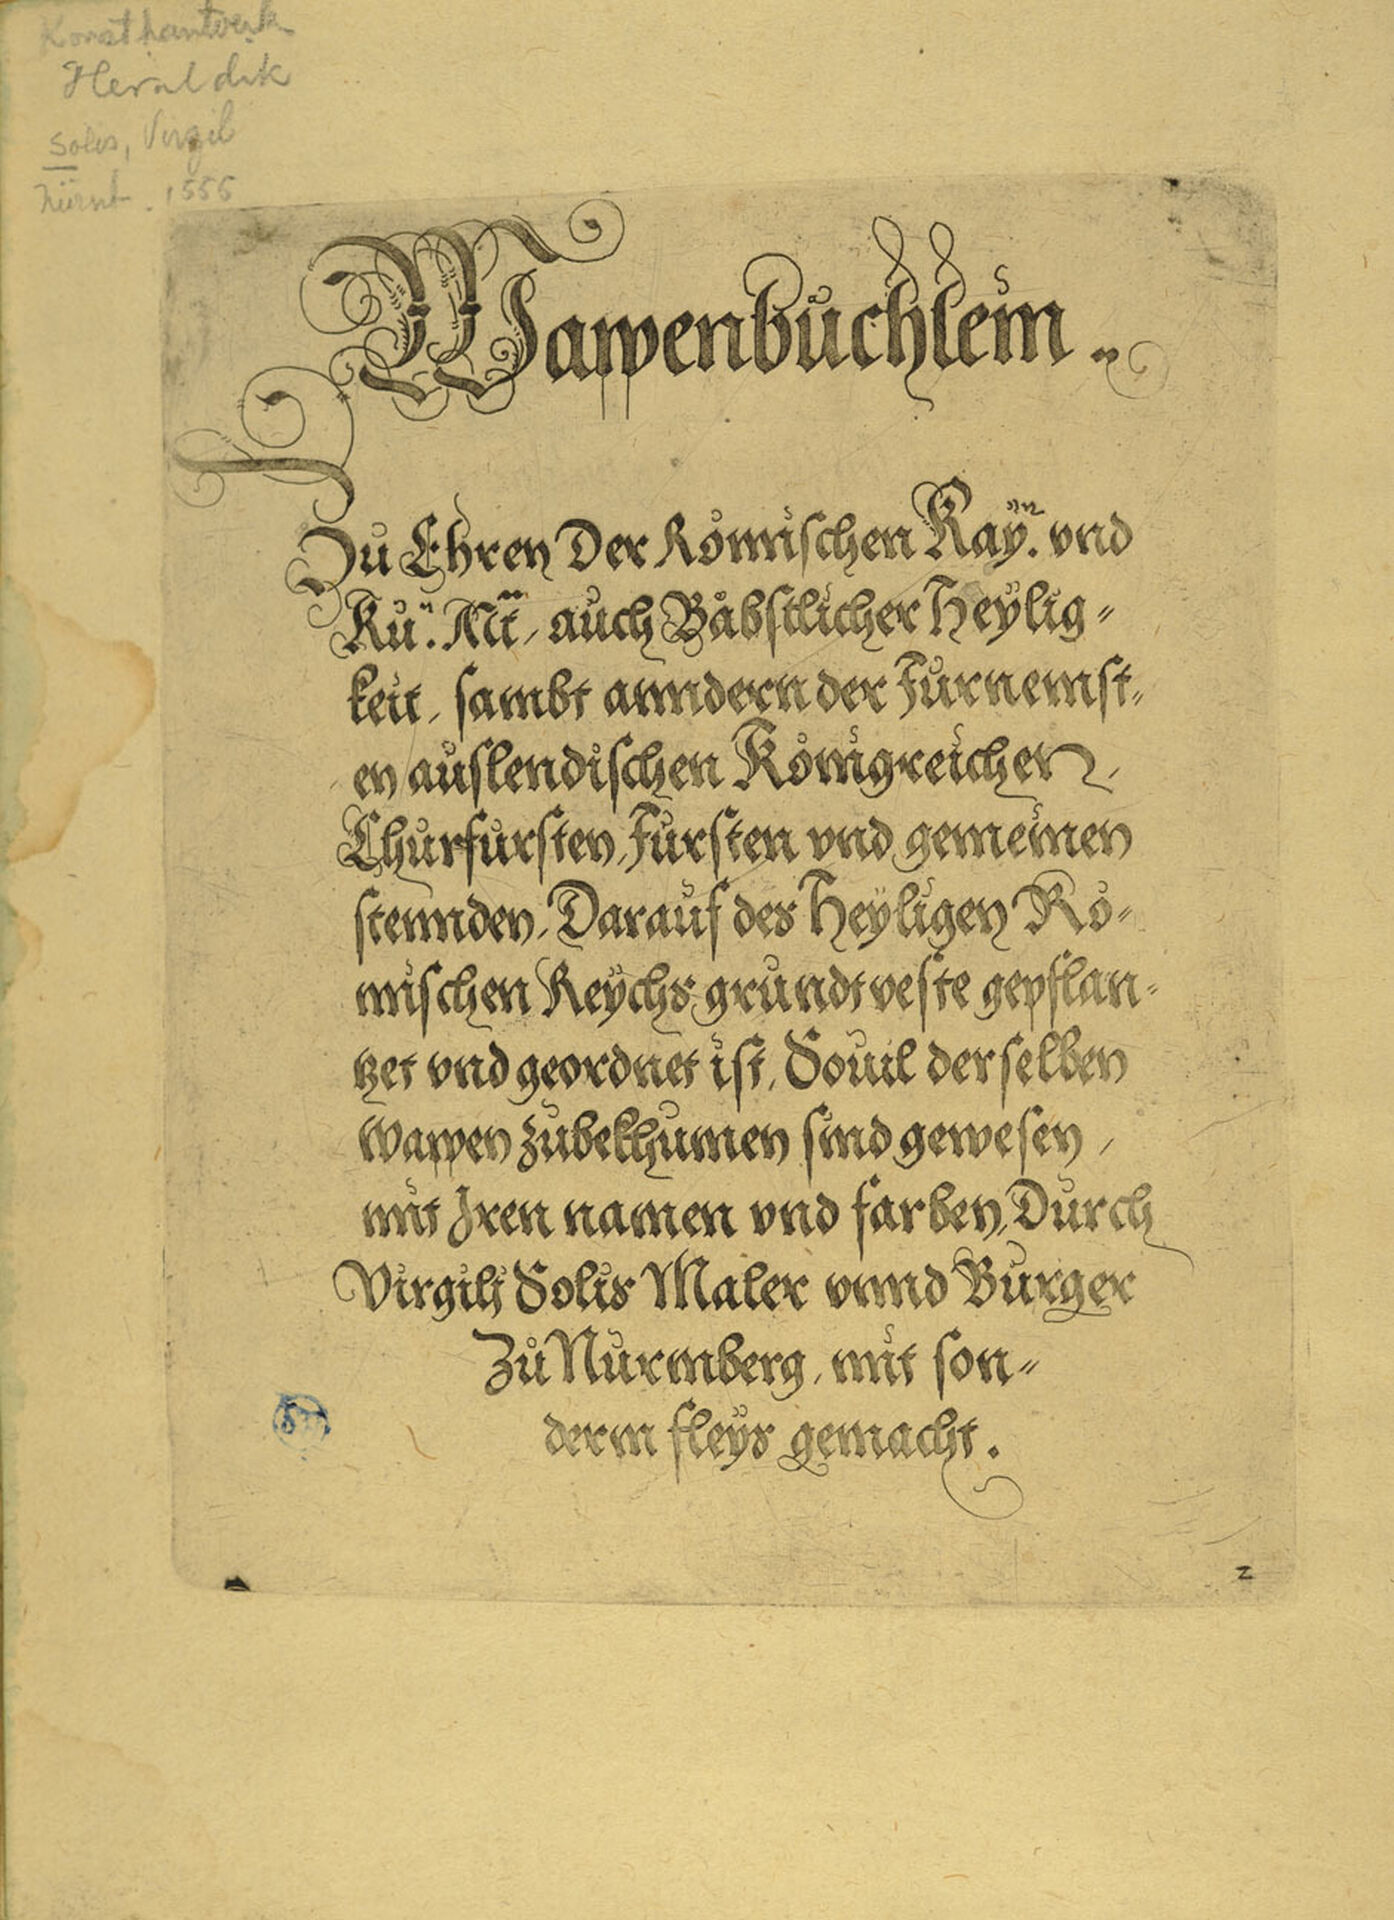 Konsthantverk
Heraldik
Solis, Virgil
Nürnb. 1555
Wapenbuchlein.
Zu Ehren Der Römischen Kay. vnd
Kü. Mt, auch Bäbstlicher Heylig=
keit, sambt anndern der Furnemst=
en auslendischen Königreichen,
Churfursten, Fursten vnd gemeinen
stennden, Darauf des Heyligen Rö=
mischen Reychs grundtveste gepflan=
tzet vnd geordnet ist, Souil derselben
wapen zubekhumen sind gewesen,
mit Iren namen vnd farben, Durch
Virgilj Solis Maler vnnd Burger
Zu Nurmberg, mit son=
derm fleys gemacht.
2